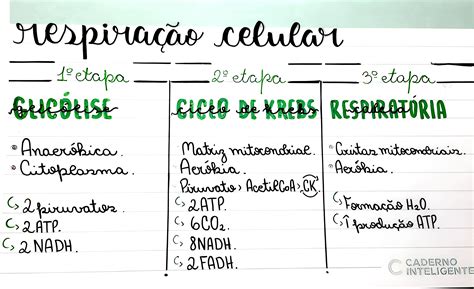 respiração celular
1ª etapa
GLICÓLISE
Anaeróbica.
Citoplasma.
2 piruvatos.
2ATP.
2 NADH.
2ª etapa
CICLO DE KREBS
Matriz mitocondrial.
Aeróbia.
Piruvato › AcetilCoA › CK
2ATP.
6CO₂.
8NADH.
2FADH.
3ª etapa
RESPIRATÓRIA
Cristas mitocondriais.
Aeróbia.
Formação H₂O.
↑ produção ATP.
CADERNO
INTELIGENTE